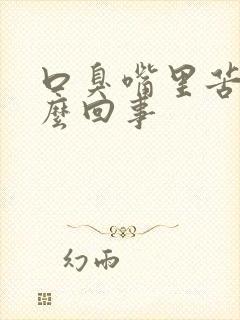 口臭嘴里苦
麼回事
幻雨